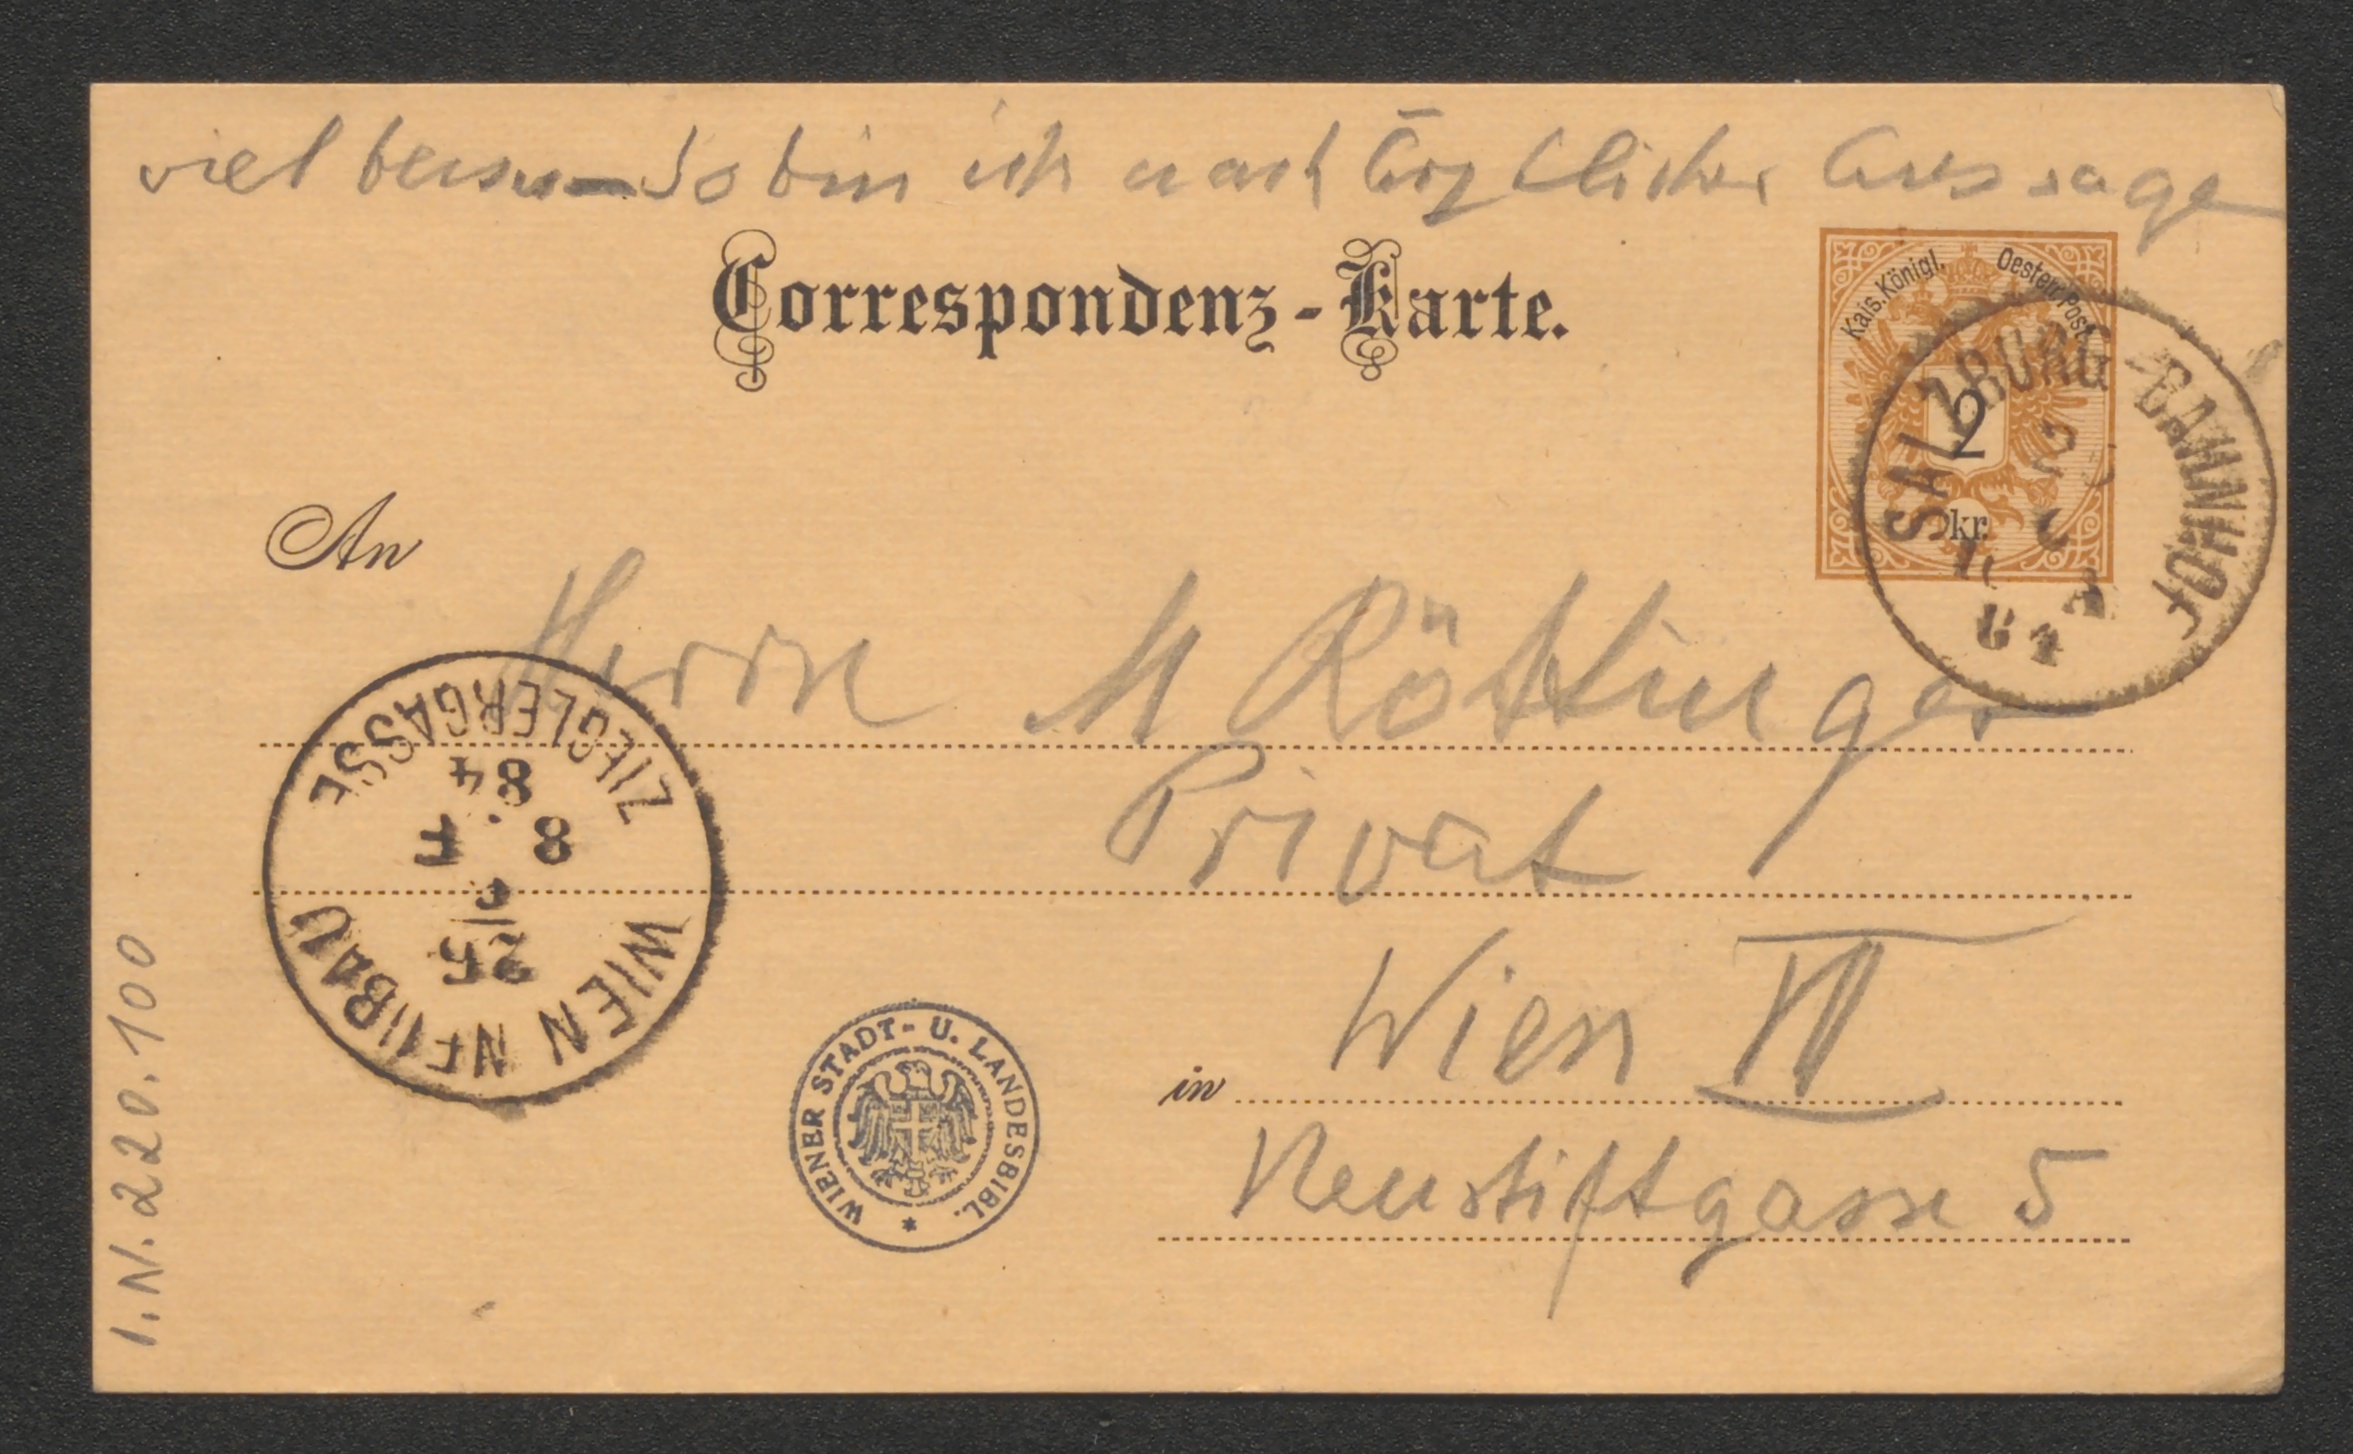 viel besser – So bin ich nach ärztlicher Aussage
Correspondenz-Karte.
Kais. Königl. Oesterr. Post
2
kr.
SALZBURG -BAHNHOF
84
An
Herrn M Röttinger
Privat
in Wien VII
Neustiftgasse 5
WIEN NEUBAU
25
8 F
84
ZIEGLERGASSE
WIENER STADT- U. LANDESBIBL. *
I.N. 220.100